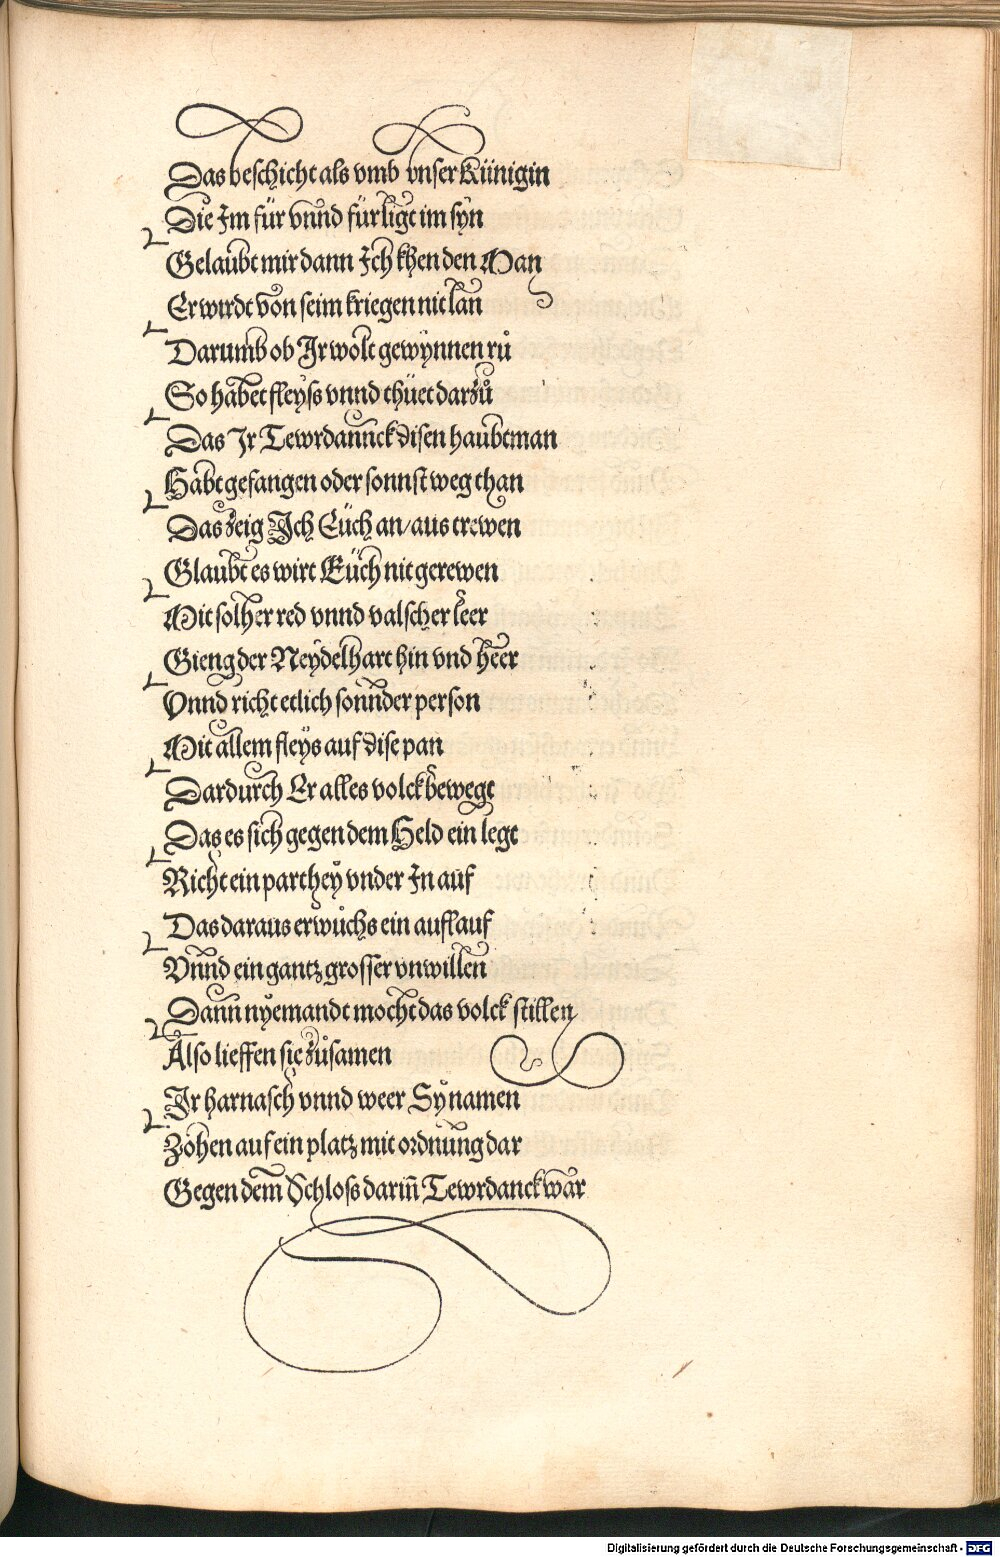 Das beschicht als vmb vnser Künigin
Die Im für vnnd für ligt im syn
Gelaubt mir dann Ich khen den Man
Er wirdt von seim kriegen nit lan
Darumb ob Ir wolt gewynnen rů
So habet fleyss vnnd thüet darzů
Das Ir Tewrdannck disen haubtman
Habt gefangen oder sonnst weg than
Das zeig Ich Eüch an / aus trewen
Glaubt es wirt Eüch nit gerewen
Mit solher red vnnd valscher leer
Gieng der Neydelhart hin vnd heer
Vnnd richt etlich sonnder person
Mit allem fleys auf dise pan
Dardurch Er alles volck bewegt
Das es sich gegen dem Held ein legt
Richt ein parthey vnder In auf
Das daraus erwuchs ein aufflauf
Vnnd ein gantz grosser vnwillen
Dann nyemandt mocht das volck stillen
Also lieffen sie zůsamen
Ir harnasch vnnd weer Sy namen
Zohen auf ein platz mit ordnung dar
Gegen dem Schloss darin̄ Tewrdanck war
Digitalisierung gefördert durch die Deutsche Forschungsgemeinschaft - DFG